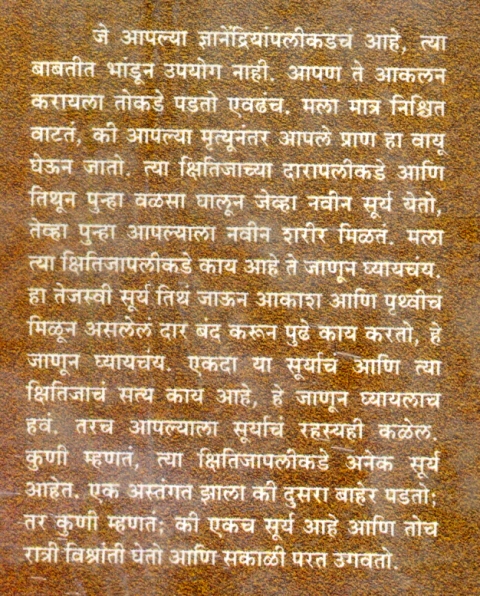 जे आपल्या ज्ञानेंद्रियांपलीकडचं आहे, त्या
बाबतीत भांडून उपयोग नाही. आपण ते आकलन
करायला तोकडे पडतो एवढंच. मला मात्र निश्चित
वाटतं, की आपल्या मृत्यूनंतर आपले प्राण हा वायू
घेऊन जातो. त्या क्षितिजाच्या दारापलीकडे आणि
तिथून पुन्हा वळसा घालून जेव्हा नवीन सूर्य येतो,
तेव्हा पुन्हा आपल्याला नवीन शरीर मिळतं. मला
त्या क्षितिजापलीकडे काय आहे ते जाणून घ्यायचंय.
हा तेजस्वी सूर्य तिथं जाऊन आकाश आणि पृथ्वीचं
मिळून असलेलं दार बंद करून पुढे काय करतो, हे
जाणून घ्यायचंय. एकदा या सूर्याचं आणि त्या
क्षितिजाचं सत्य काय आहे, हे जाणून घ्यायलाच
हवं. तरच आपल्याला सूर्याचं रहस्यही कळेल.
कुणी म्हणतं, त्या क्षितिजापलीकडे अनेक सूर्य
आहेत. एक अस्तंगत झाला की दुसरा बाहेर पडतो;
तर कुणी म्हणतं; की एकच सूर्य आहे आणि तोच
रात्री विश्रांती घेतो आणि सकाळी परत उगवतो.